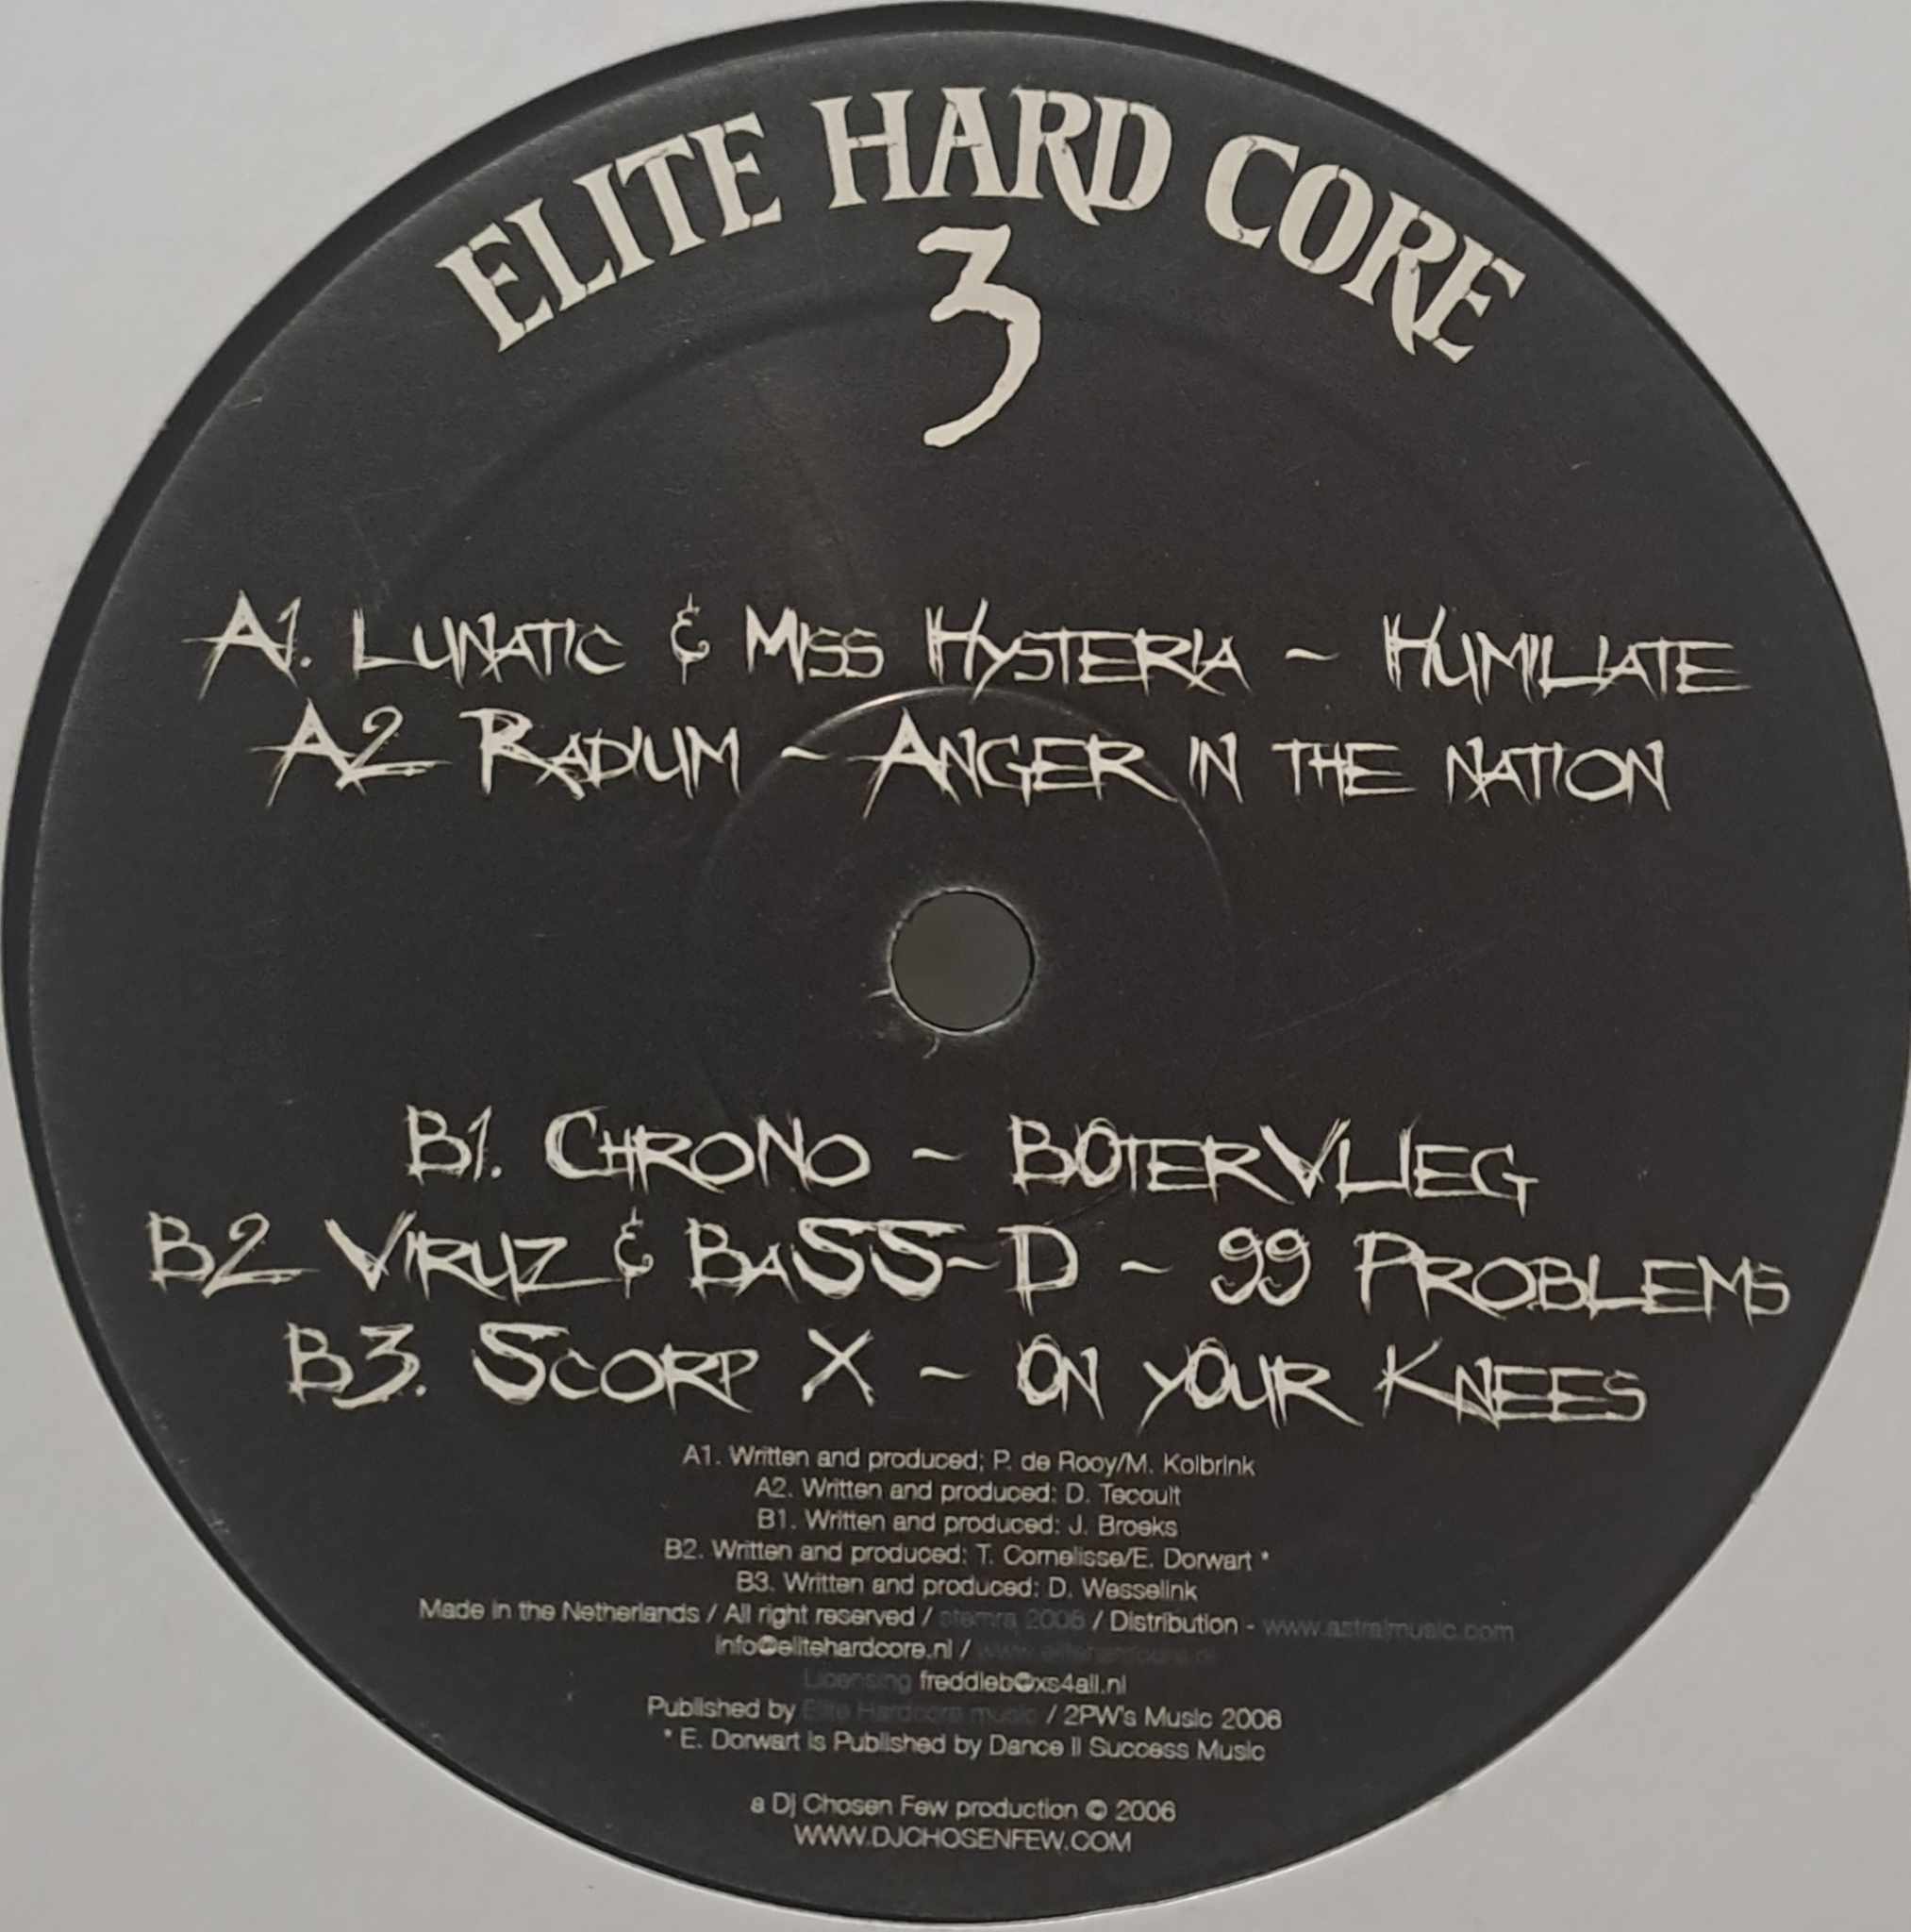 ELITE HARD CORE
3
A1. LUNATIC & MISS HYSTERIA - HUMILIATE
A2 RADIUM - ANGER IN THE NATION
B1. CHRONO - BOTERVLIEG
B2 VIRUZ & BASS-D - 99 PROBLEMS
B3. SCORP X - ON YOUR KNEES
A1. Written and produced; P. de Rooy/M. Kolbrink
A2. Written and produced: D. Tecoult
B1. Written and produced: J. Broeks
B2. Written and produced: T. Cornelisse/E. Dorwart *
B3. Written and produced: D. Wesselink
Made in the Netherlands / All right reserved / stemra 2006 / Distribution - www.astralmusic.com
info@elitehardcore.nl / www.elitehardcore.nl
Licensing freddieb@xs4all.nl
Published by Elite Hardcore music / 2PW's Music 2006
* E. Dorwart is Published by Dance II Success Music
a Dj Chosen Few production © 2006
WWW.DJCHOSENFEW.COM